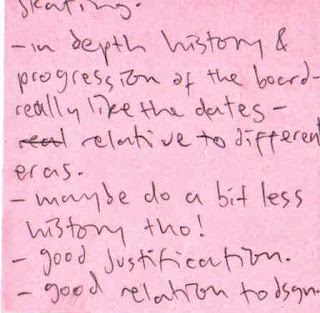 skating.
- in depth history &
progression of the board -
really like the dates -
real relative to different
eras.
- maybe do a bit less
history tho!
- good justification.
- good relation to dsgn.